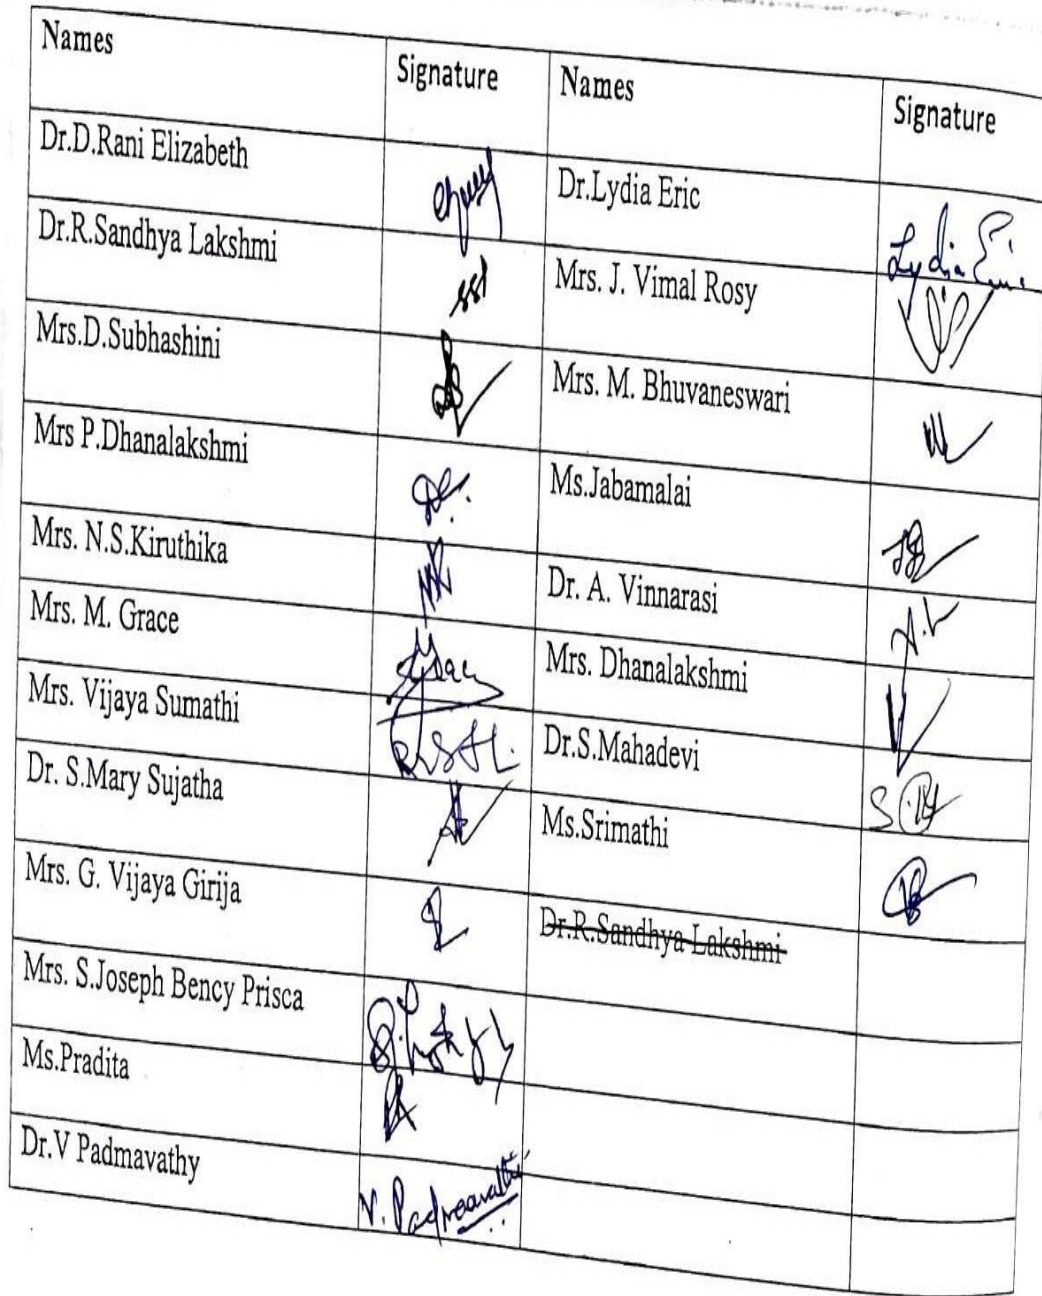 Names Signature Names Signature
Dr.D.Rani Elizabeth Dr.Lydia Eric Lydia Eric
Dr.R.Sandhya Lakshmi Mrs. J. Vimal Rosy
Mrs.D.Subhashini Mrs. M. Bhuvaneswari
Mrs P.Dhanalakshmi Ms.Jabamalai
Mrs. N.S.Kiruthika Dr. A. Vinnarasi
Mrs. M. Grace Mrs. Dhanalakshmi
Mrs. Vijaya Sumathi Dr.S.Mahadevi
Dr. S.Mary Sujatha Ms.Srimathi
Mrs. G. Vijaya Girija Dr.R.Sandhya Lakshmi
Mrs. S.Joseph Bency Prisca
Ms.Pradita
Dr.V Padmavathy V. Padmavathi